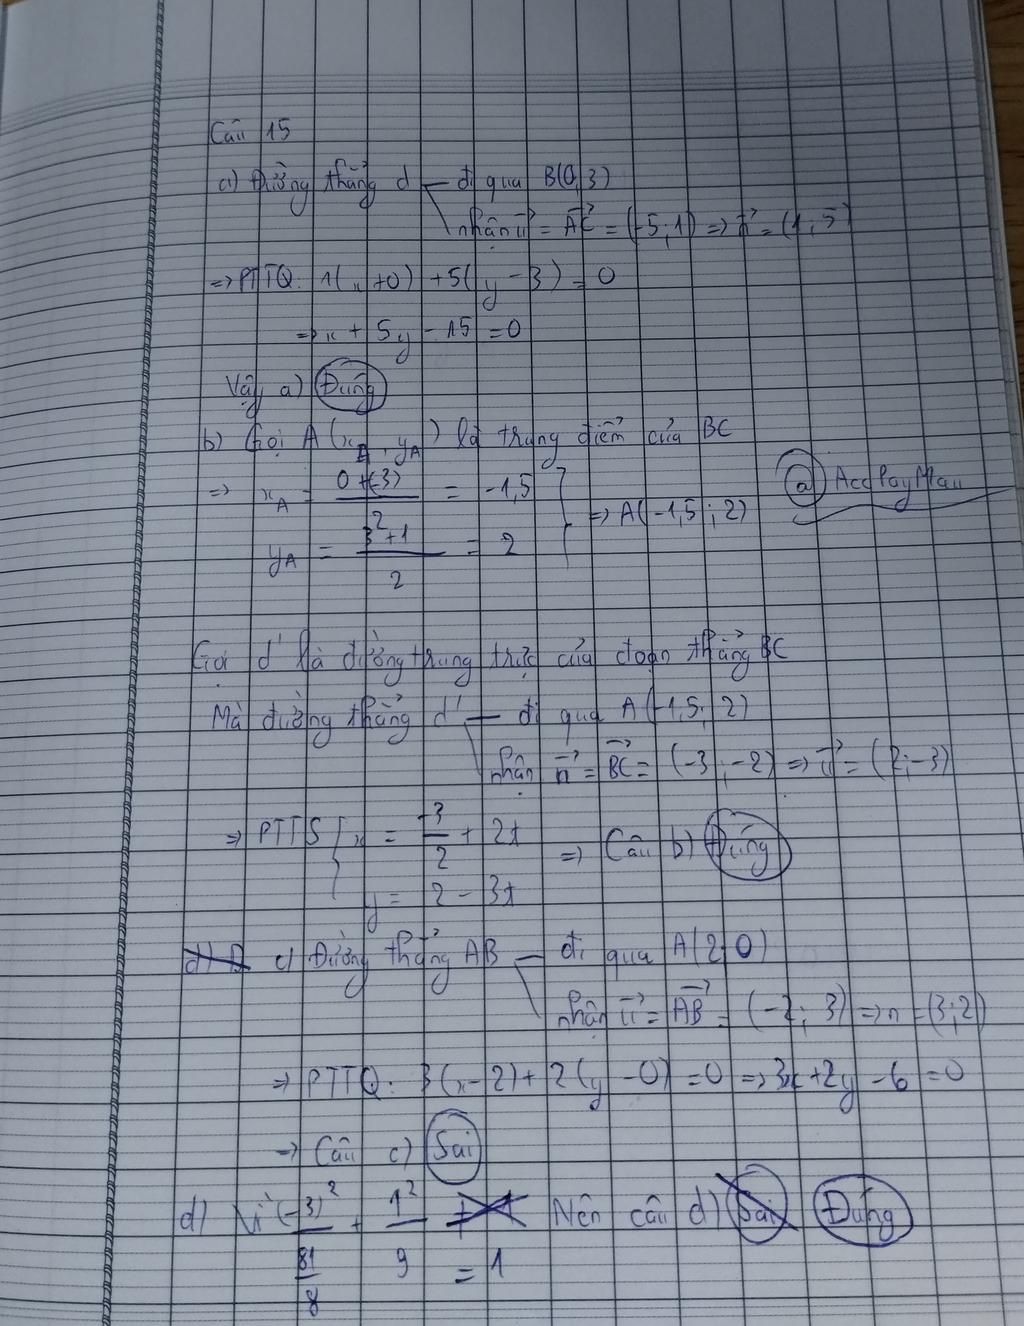 Câu 15
a) Đường thẳng d — đi qua B(0,3)
nhận u⃗ = AC⃗ = (-5;1) => n⃗ = (1;5)
=> PTTQ: 1(x+0) + 5(y-3) = 0
=> x + 5y - 15 = 0
Vậy a) Đúng
b) Gọi A(x_A, y_A) là trung điểm của BC
=> x_A = (0+(-3))/2 = -1,5
y_A = (3+1)/2 = 2
=> A(-1,5; 2)
@AccPayMau
Gọi d' là đường trung trực của đoạn thẳng BC
Mà đường thẳng d' — đi qua A(-1,5; 2)
nhận n⃗ = BC⃗ = (-3; -2) => u⃗ = (2;-3)
=> PTTS { x = -3/2 + 2t
y = 2 - 3t
=> Câu b) Đúng
c) Đường thẳng AB — đi qua A(2;0)
nhận u⃗ = AB⃗ = (-2; 3) => n = (3;2)
=> PTTQ: 3(x-2) + 2(y-0) = 0 => 3x + 2y - 6 = 0
=> Câu c) Sai
d) Vì (-3)²/(81/8) + 1²/9 = 1 Nên câu d) Sai Đúng